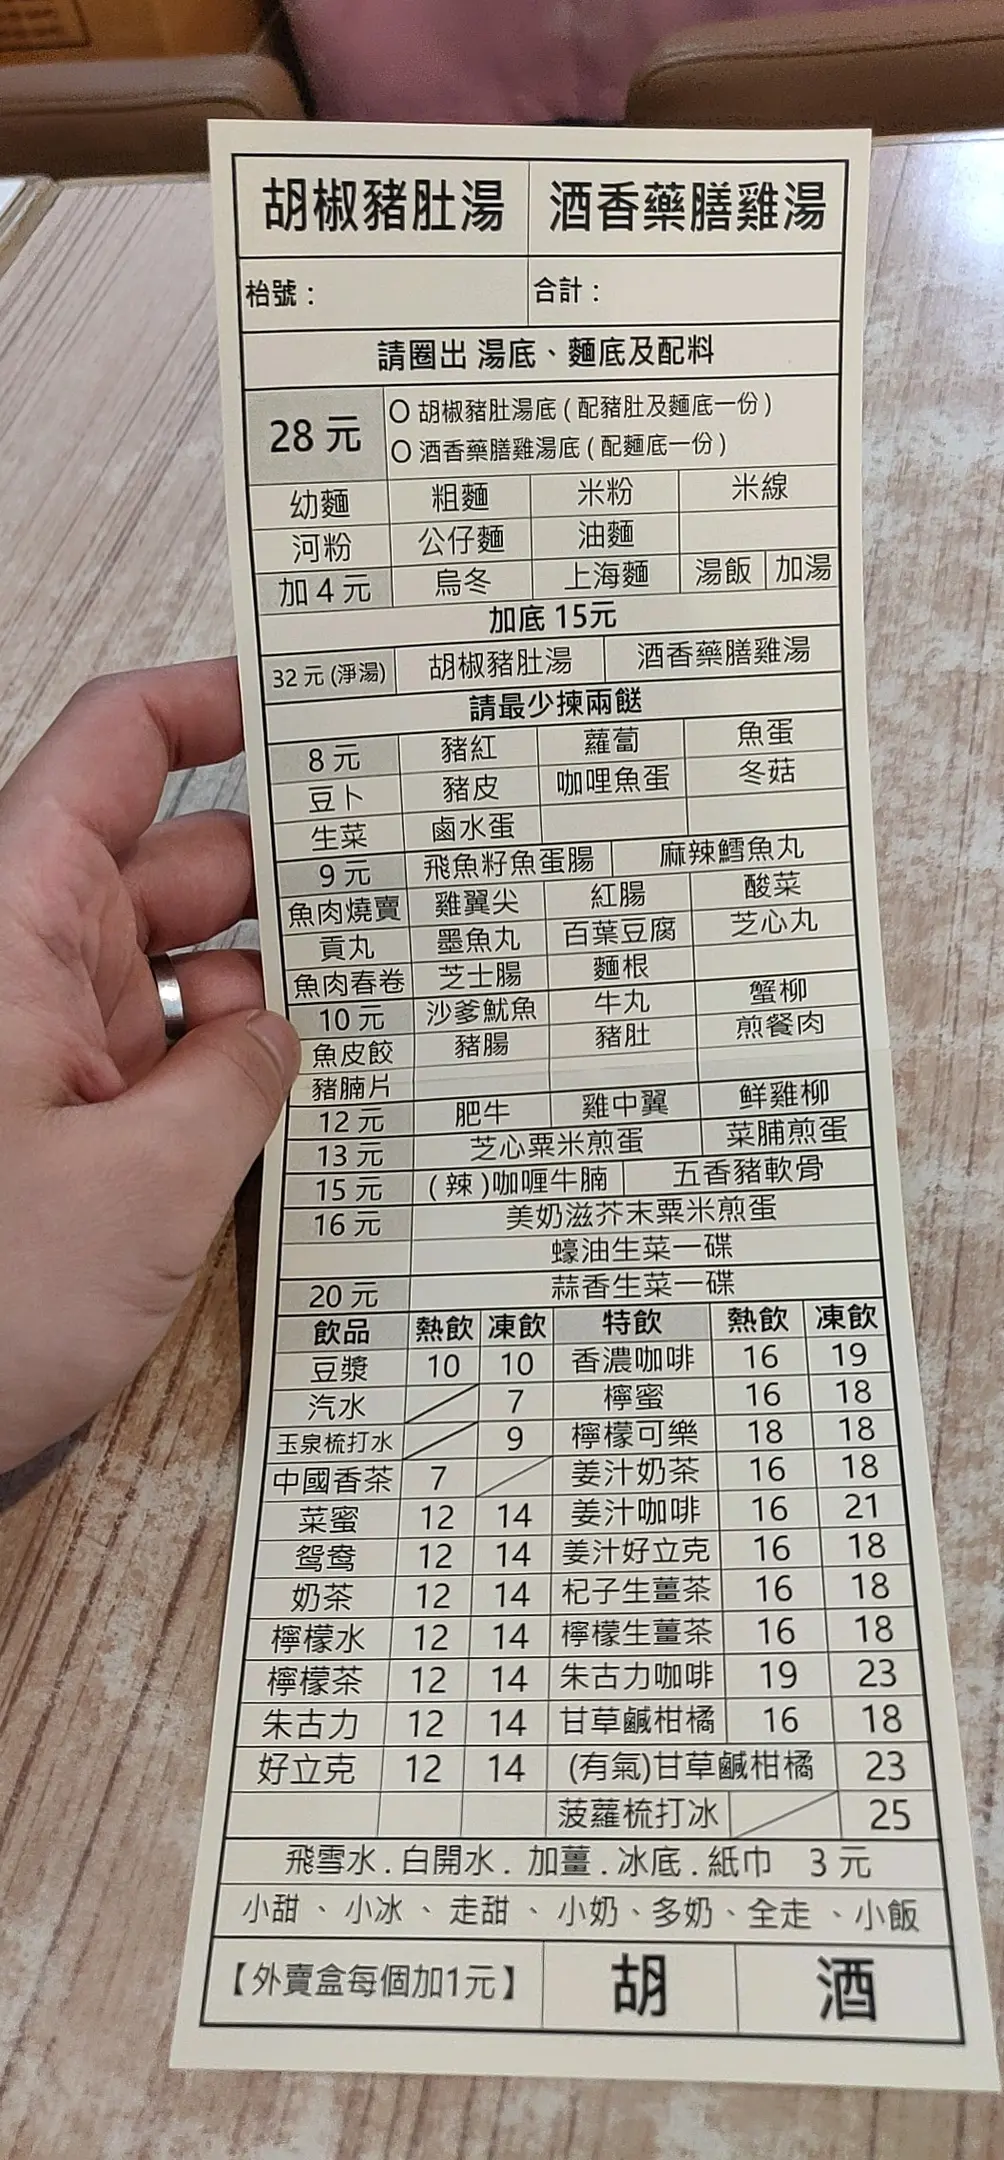 胡椒豬肚湯 酒香藥膳雞湯
枱號： 合計：
請圈出 湯底、麵底及配料
28 元 O 胡椒豬肚湯底 ( 配豬肚及麵底一份 )
O 酒香藥膳雞湯底 ( 配麵底一份 )
幼麵 粗麵 米粉 米線
河粉 公仔麵 油麵
加 4 元 烏冬 上海麵 湯飯 加湯
加底 15元
32 元 (淨湯) 胡椒豬肚湯 酒香藥膳雞湯
請最少揀兩餸
8 元 豬紅 蘿蔔 魚蛋
豆卜 豬皮 咖哩魚蛋 冬菇
生菜 鹵水蛋
9 元 飛魚籽魚蛋腸 麻辣鱈魚丸
魚肉燒賣 雞翼尖 紅腸 酸菜
貢丸 墨魚丸 百葉豆腐 芝心丸
魚肉春卷 芝士腸 麵根
10 元 沙爹魷魚 牛丸 蟹柳
魚皮餃 豬腸 豬肚 煎餐肉
豬腩片
12 元 肥牛 雞中翼 鮮雞柳
13 元 芝心粟米煎蛋 菜脯煎蛋
15 元 ( 辣 )咖喱牛腩 五香豬軟骨
16 元 美奶滋芥末粟米煎蛋
蠔油生菜一碟
20 元 蒜香生菜一碟
飲品 熱飲 凍飲 特飲 熱飲 凍飲
豆漿 10 10 香濃咖啡 16 19
汽水 7 檸蜜 16 18
玉泉梳打水 9 檸檬可樂 18 18
中國香茶 7 姜汁奶茶 16 18
菜蜜 12 14 姜汁咖啡 16 21
鴛鴦 12 14 姜汁好立克 16 18
奶茶 12 14 杞子生薑茶 16 18
檸檬水 12 14 檸檬生薑茶 16 18
檸檬茶 12 14 朱古力咖啡 19 23
朱古力 12 14 甘草鹹柑橘 16 18
好立克 12 14 (有氣)甘草鹹柑橘 23
菠蘿梳打冰 25
飛雪水 . 白開水 . 加薑 . 冰底 . 紙巾 3 元
小甜 、 小冰 、 走甜 、 小奶、多奶、全走 、小飯
【外賣盒每個加1元】 胡 酒